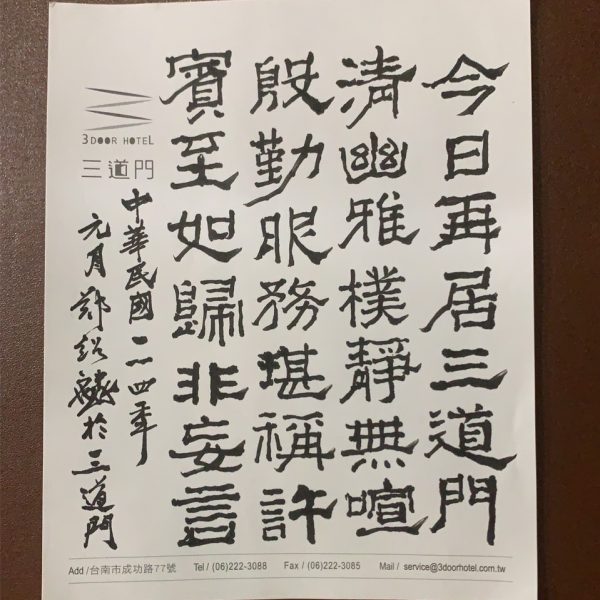 今日再居三道門
清幽雅樸靜無喧
殷勤服務堪稱許
賓至如歸非妄言
中華民國一一四年
元月 於三道門
3 DOOR HOTEL
三道門
Add /台南市成功路77號 Tel / (06)222-3088 Fax / (06)222-3085 Mail / service@3doorhotel.com.tw